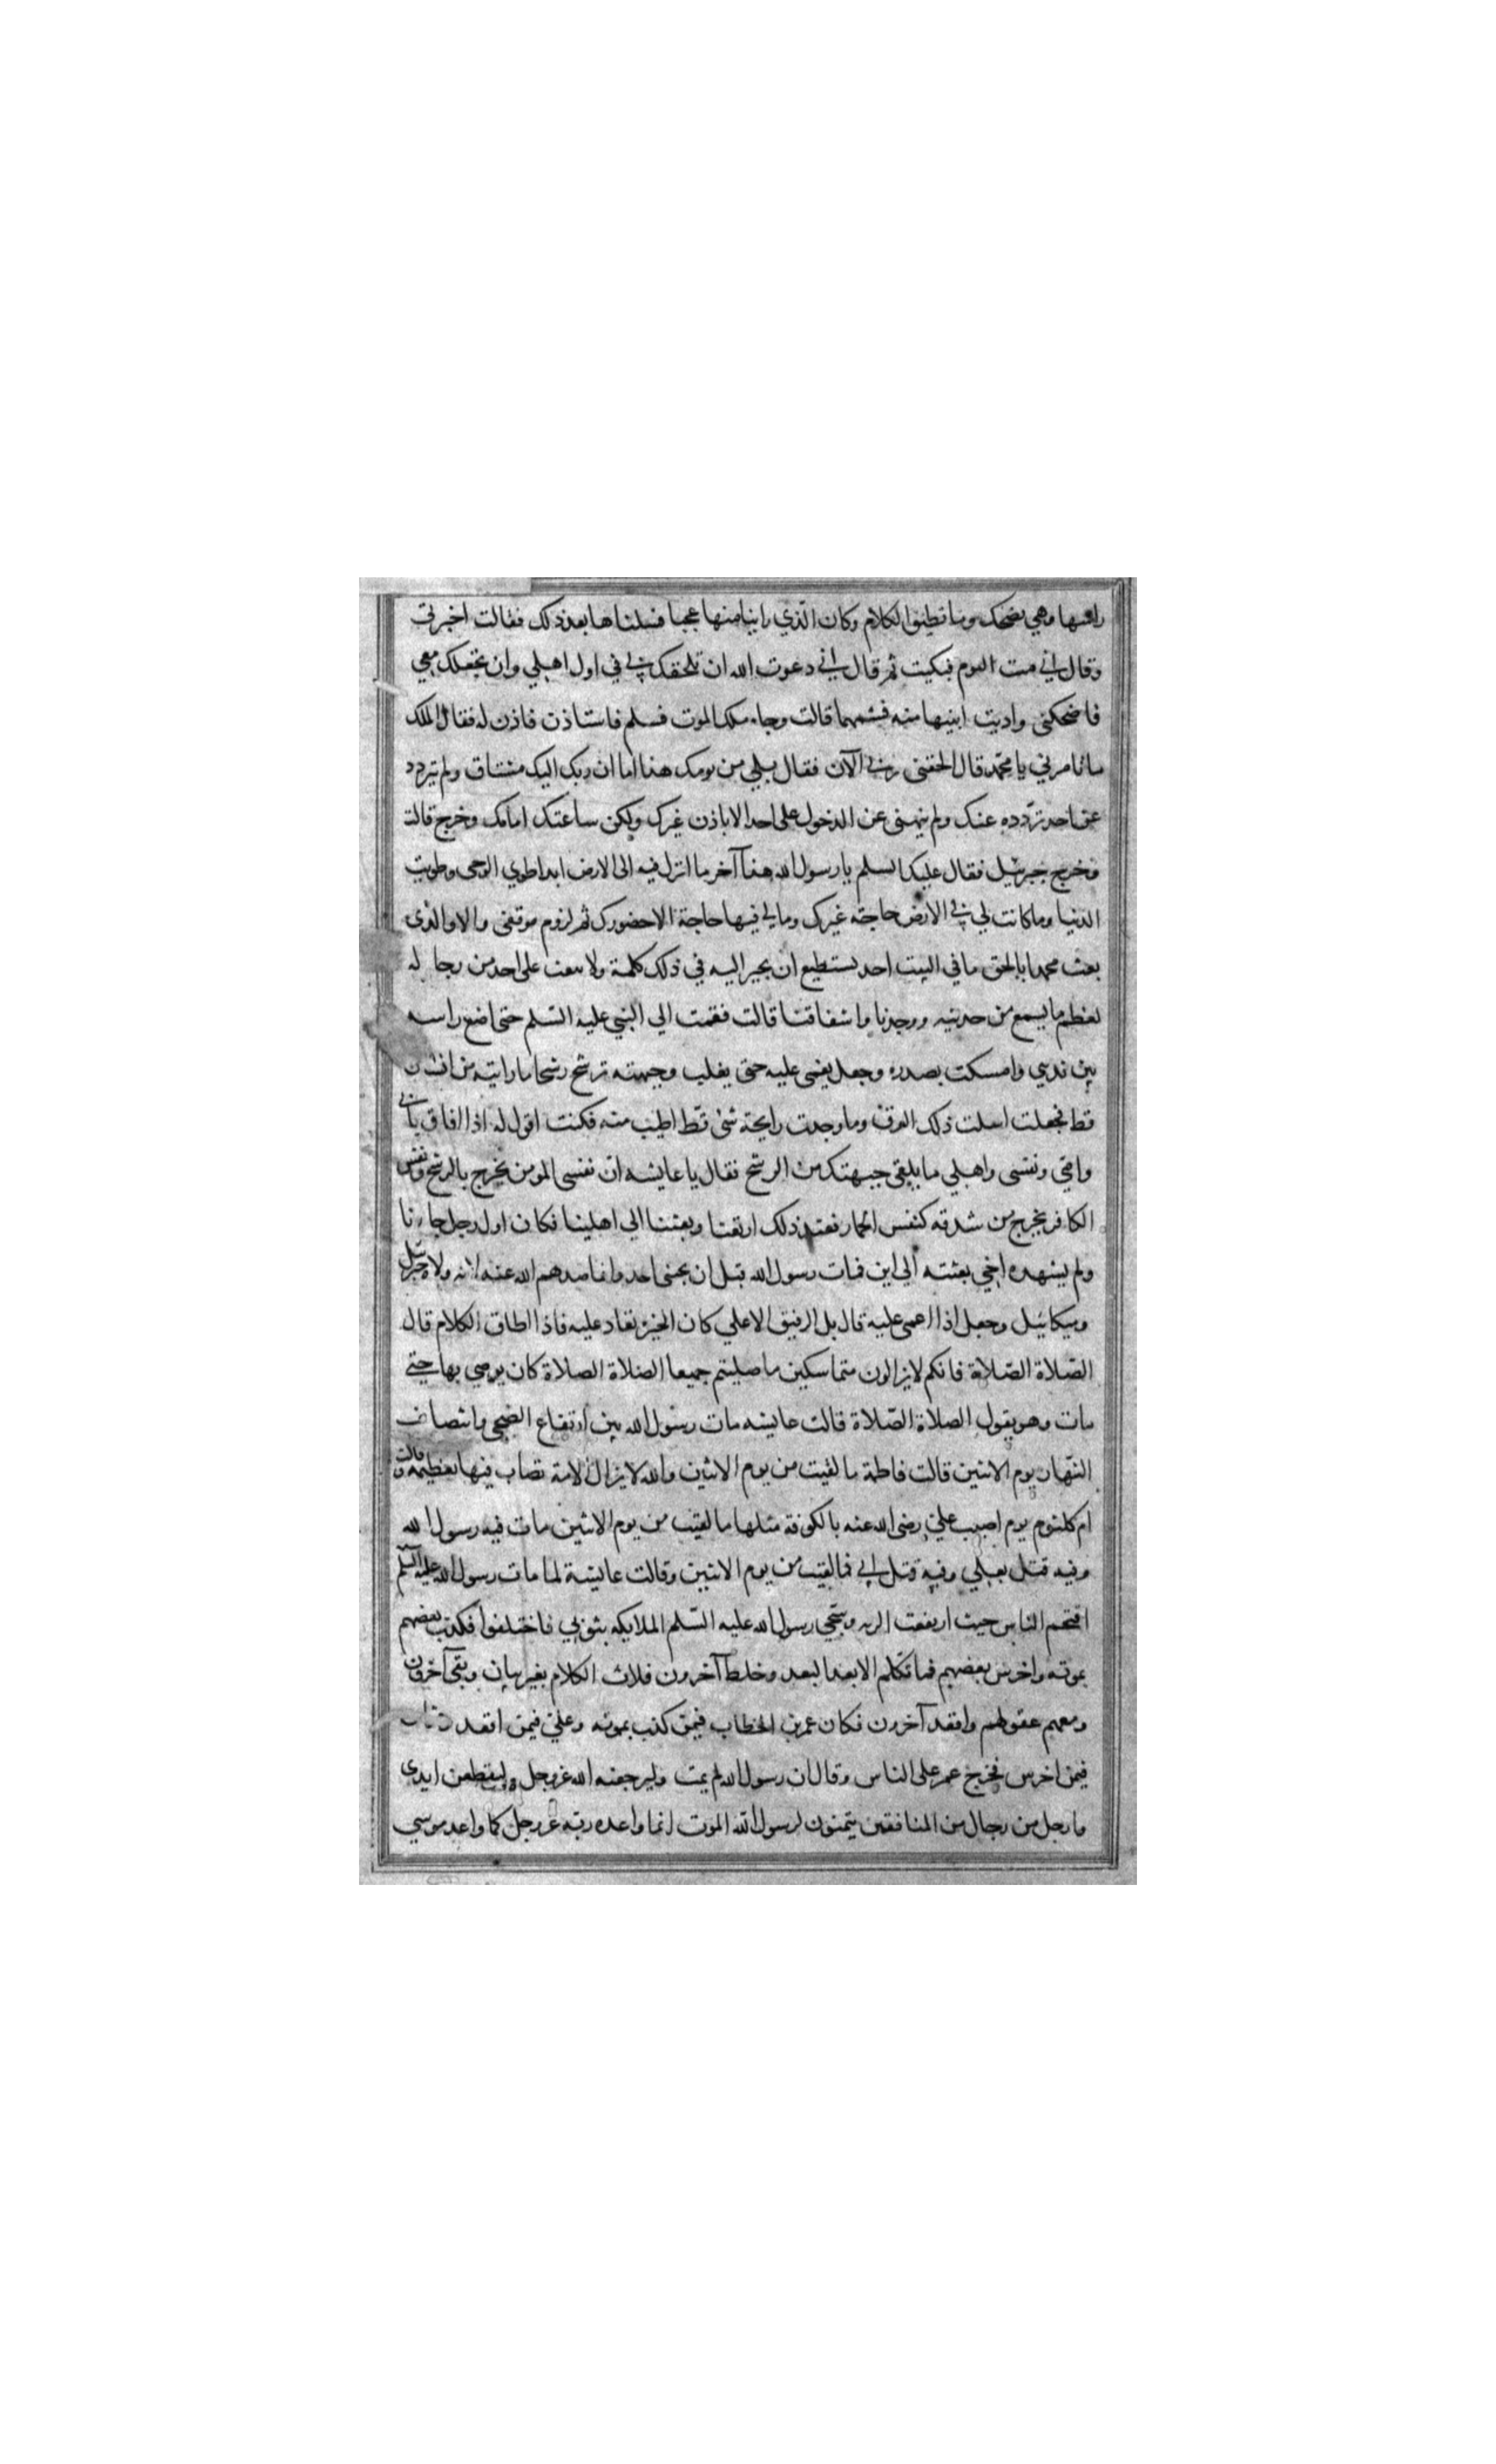 راسها وهي تضحك وما تطيق الكلام وكان الذي راينا منها عجبا فسلناها بعد ذلك فقالت اخبرني
وقال اني ميت اليوم فبكيت ثم قال اني دعوت الله ان يلحقك بي في اول اهلي وان يجعلك معي
فاضحكني وادنت ابنيها منه فشمهما قالت وجاء ملك الموت فسلم فاستاذن فاذن له فقال الملك
ما تامرني يا محمد قال الحقني بربي الآن فقال بلي من يومك هذا اما ان ربك اليك مشتاق ولم يتردد
عن احد تردده عنك ولم ينهني عن الدخول على احد الا باذن غيرك ولكن ساعتك امامك وخرج قالت
وخرج جبرئيل فقال عليك السلم يا رسول الله هذا آخر ما انزل فيه الى الارض ابدا طوي الوحي وطويت
الدنيا وما كانت لي في الارض حاجة غيرك وما لي فيها حاجة الا حضورك ثم لزوم موقفي والا والذي
بعث محمدا بالحق ما في البيت احد يستطيع ان يحير اليه في ذلك كلمة ولا يبعث على احد من رجاله
لعظم ما يسمع من حديثه ووجدنا واشفاقنا قالت فقمت الي النبي عليه السلم حتى اضع راسه
بين ثديي وامسكت بصدره وجعل يغمى عليه حتى يغلب وجبهته ترشح رشحا ما رايته من انسان
قط فجعلت اسلت ذلك العرق وما وجدت رايحة شئ قط اطيب منه فكنت اقول له اذا افاق بابي
وامي ونفسي واهلي ما يلقى جبهتك من الرشح فقال يا عايشه ان نفس المومن يخرج بالرشح ونفس
الكافر يخرج من شدقه كنفس الحمار فعند ذلك ارتعنا وبعثنا الي اهلينا فكان اول رجل جاءنا
ولم يشهده اخي بعثته الي ابي فمات رسول الله قبل ان يجئ احد وانما صدهم الله عنه لانه ولاه جبرئيل
وميكائيل وجعل اذا اغمى عليه قال بل الرفيق الاعلي كان الخيرة تعاد عليه فاذا اطاق الكلام قال
الصلاة الصلاة فانكم لا يزالون متماسكين ما صليتم جميعا الصلاة الصلاة كان يوصي بها حتى
مات وهو يقول الصلاة الصلاة قالت عايشه مات رسول الله بين ارتفاع الضحي وانتصاف
النهار يوم الاثنين قالت فاطمة ما لقيت من يوم الاثنين والله لا يزال الامة تصاب فيها بعظيمه وقالت
ام كلثوم يوم اصيب علي رضي الله عنه بالكوفة مثلها ما لقيت من يوم الاثنين مات فيه رسول الله
وفيه قتل بعلي وفيه قتل ابي فما لقيت من يوم الاثنين وقالت عايشة لما مات رسول الله عليه السلم
اقتحم الناس حيث ارتفعت الرنه وسجي رسول الله عليه السلم الملايكه بثوبي فاختلفوا فكذب بعضهم
بموته واخرس بعضهم فما تكلم الا بعد البعد وخلط آخرون فلاث الكلام بغير بيان وبقي آخرون
ومعهم عقولهم واقعد آخرون فكان عمر بن الخطاب فيمن كذب بموته وعلي فيمن اقعد
فيمن اخرس فخرج عمر على الناس وقال ان رسول الله لم يمت وليرجعنه الله عز وجل وليقطعن ايدي
وارجل من رجال من المنافقين يتمنون لرسول الله الموت انما واعده ربه عز وجل كما واعد موسي